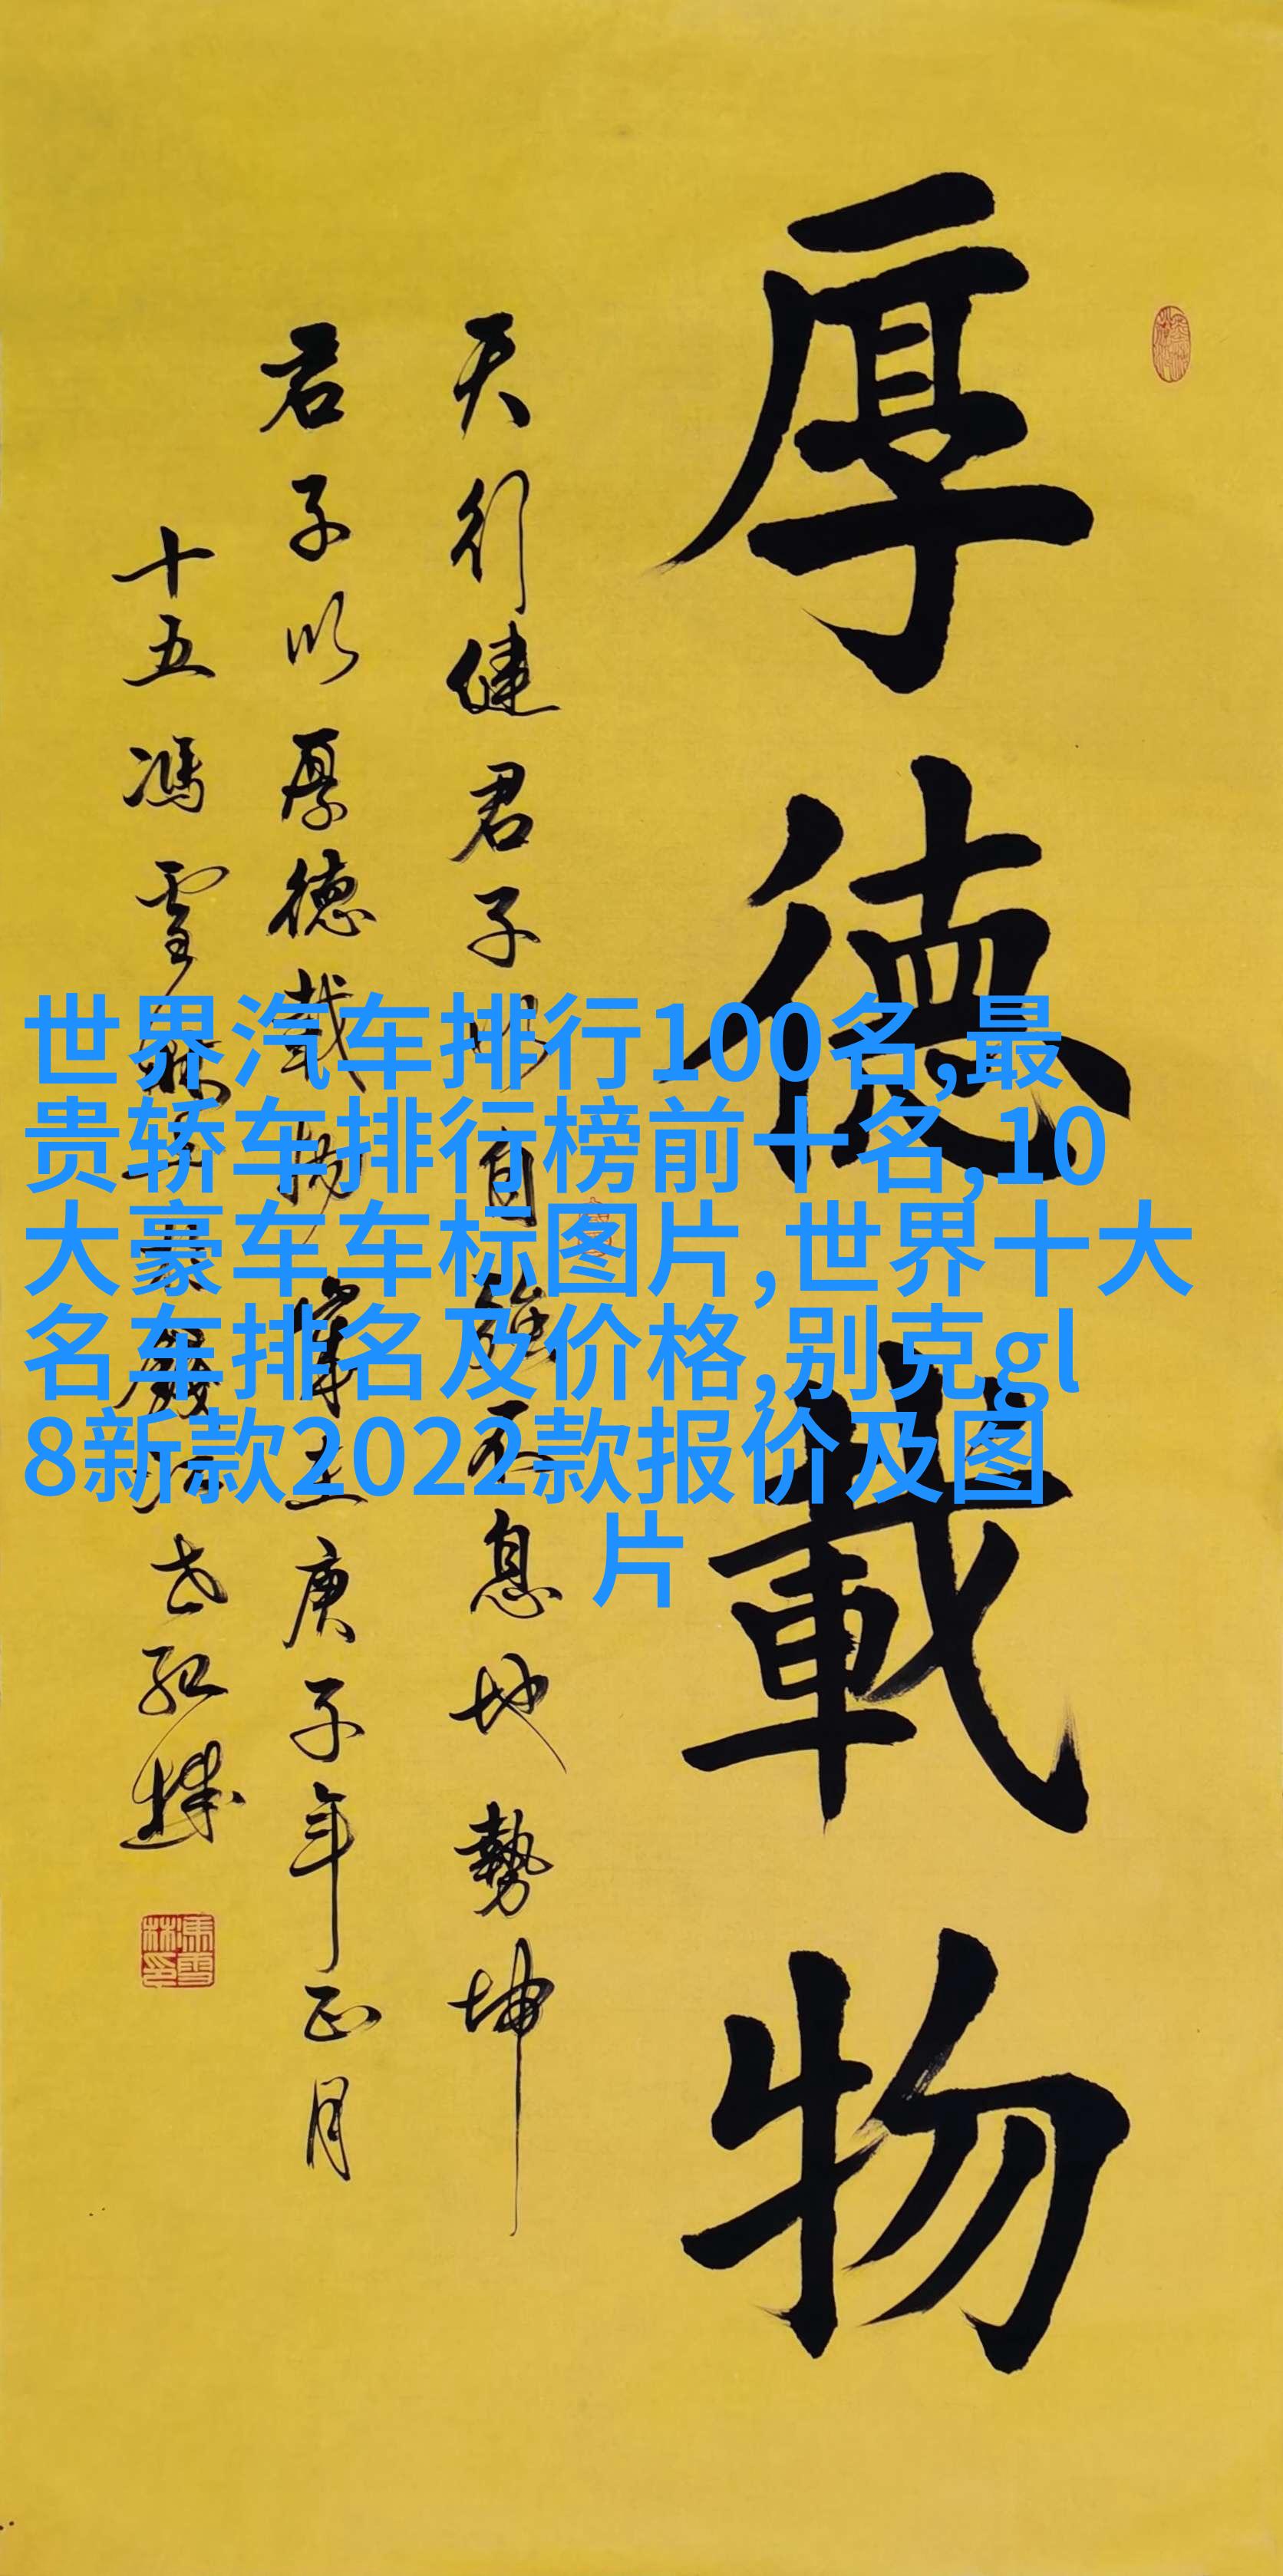 厚德載物
天行健君子以自强不息地勢坤
君子以厚德載物 歲在庚子年正月
十五馮雪林
馮雪林印
世界汽车排行100名,最
贵轿车排行榜前十名,10
大豪车车标图片,世界十大
名车排名及价格,别克gl
8新款2022款报价及图
片